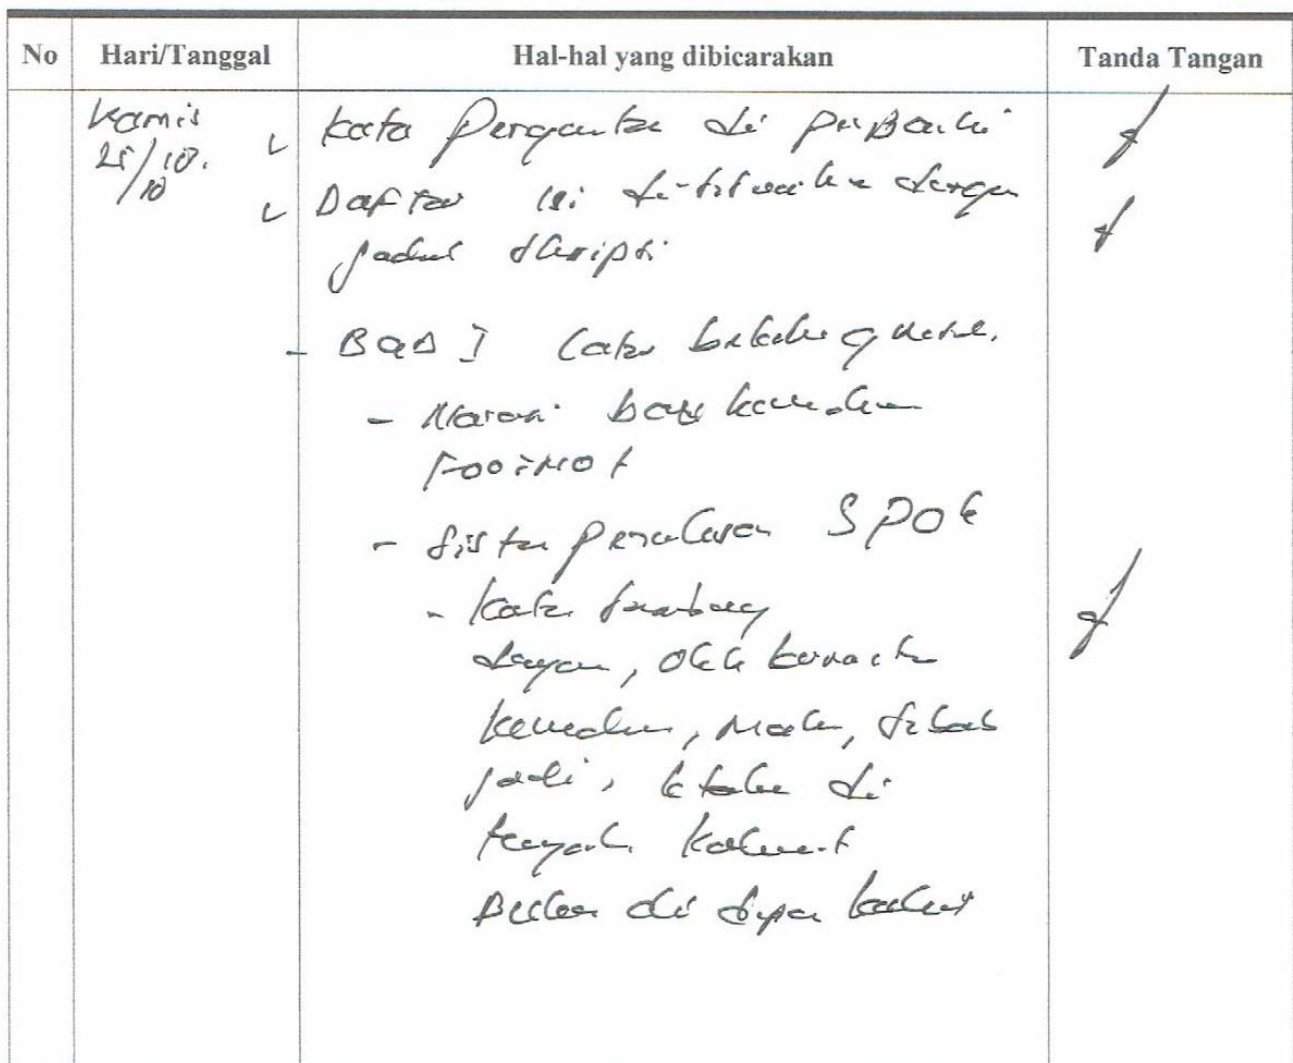 No Hari/Tanggal Hal-hal yang dibicarakan Tanda Tangan
Kamis
25/10.
/10
Kata Pengantar di perbaiki
Daftar isi di dengan
judul skripsi
- BAB I Latar belakang
- Narasi
Footnot
- Sistem penulisan SPOK
- Kata sambung
dengan, oleh karena itu
kemudian, maka, sebab
jadi, letaknya di
tengah kalimat
Bukan di depan kalimat